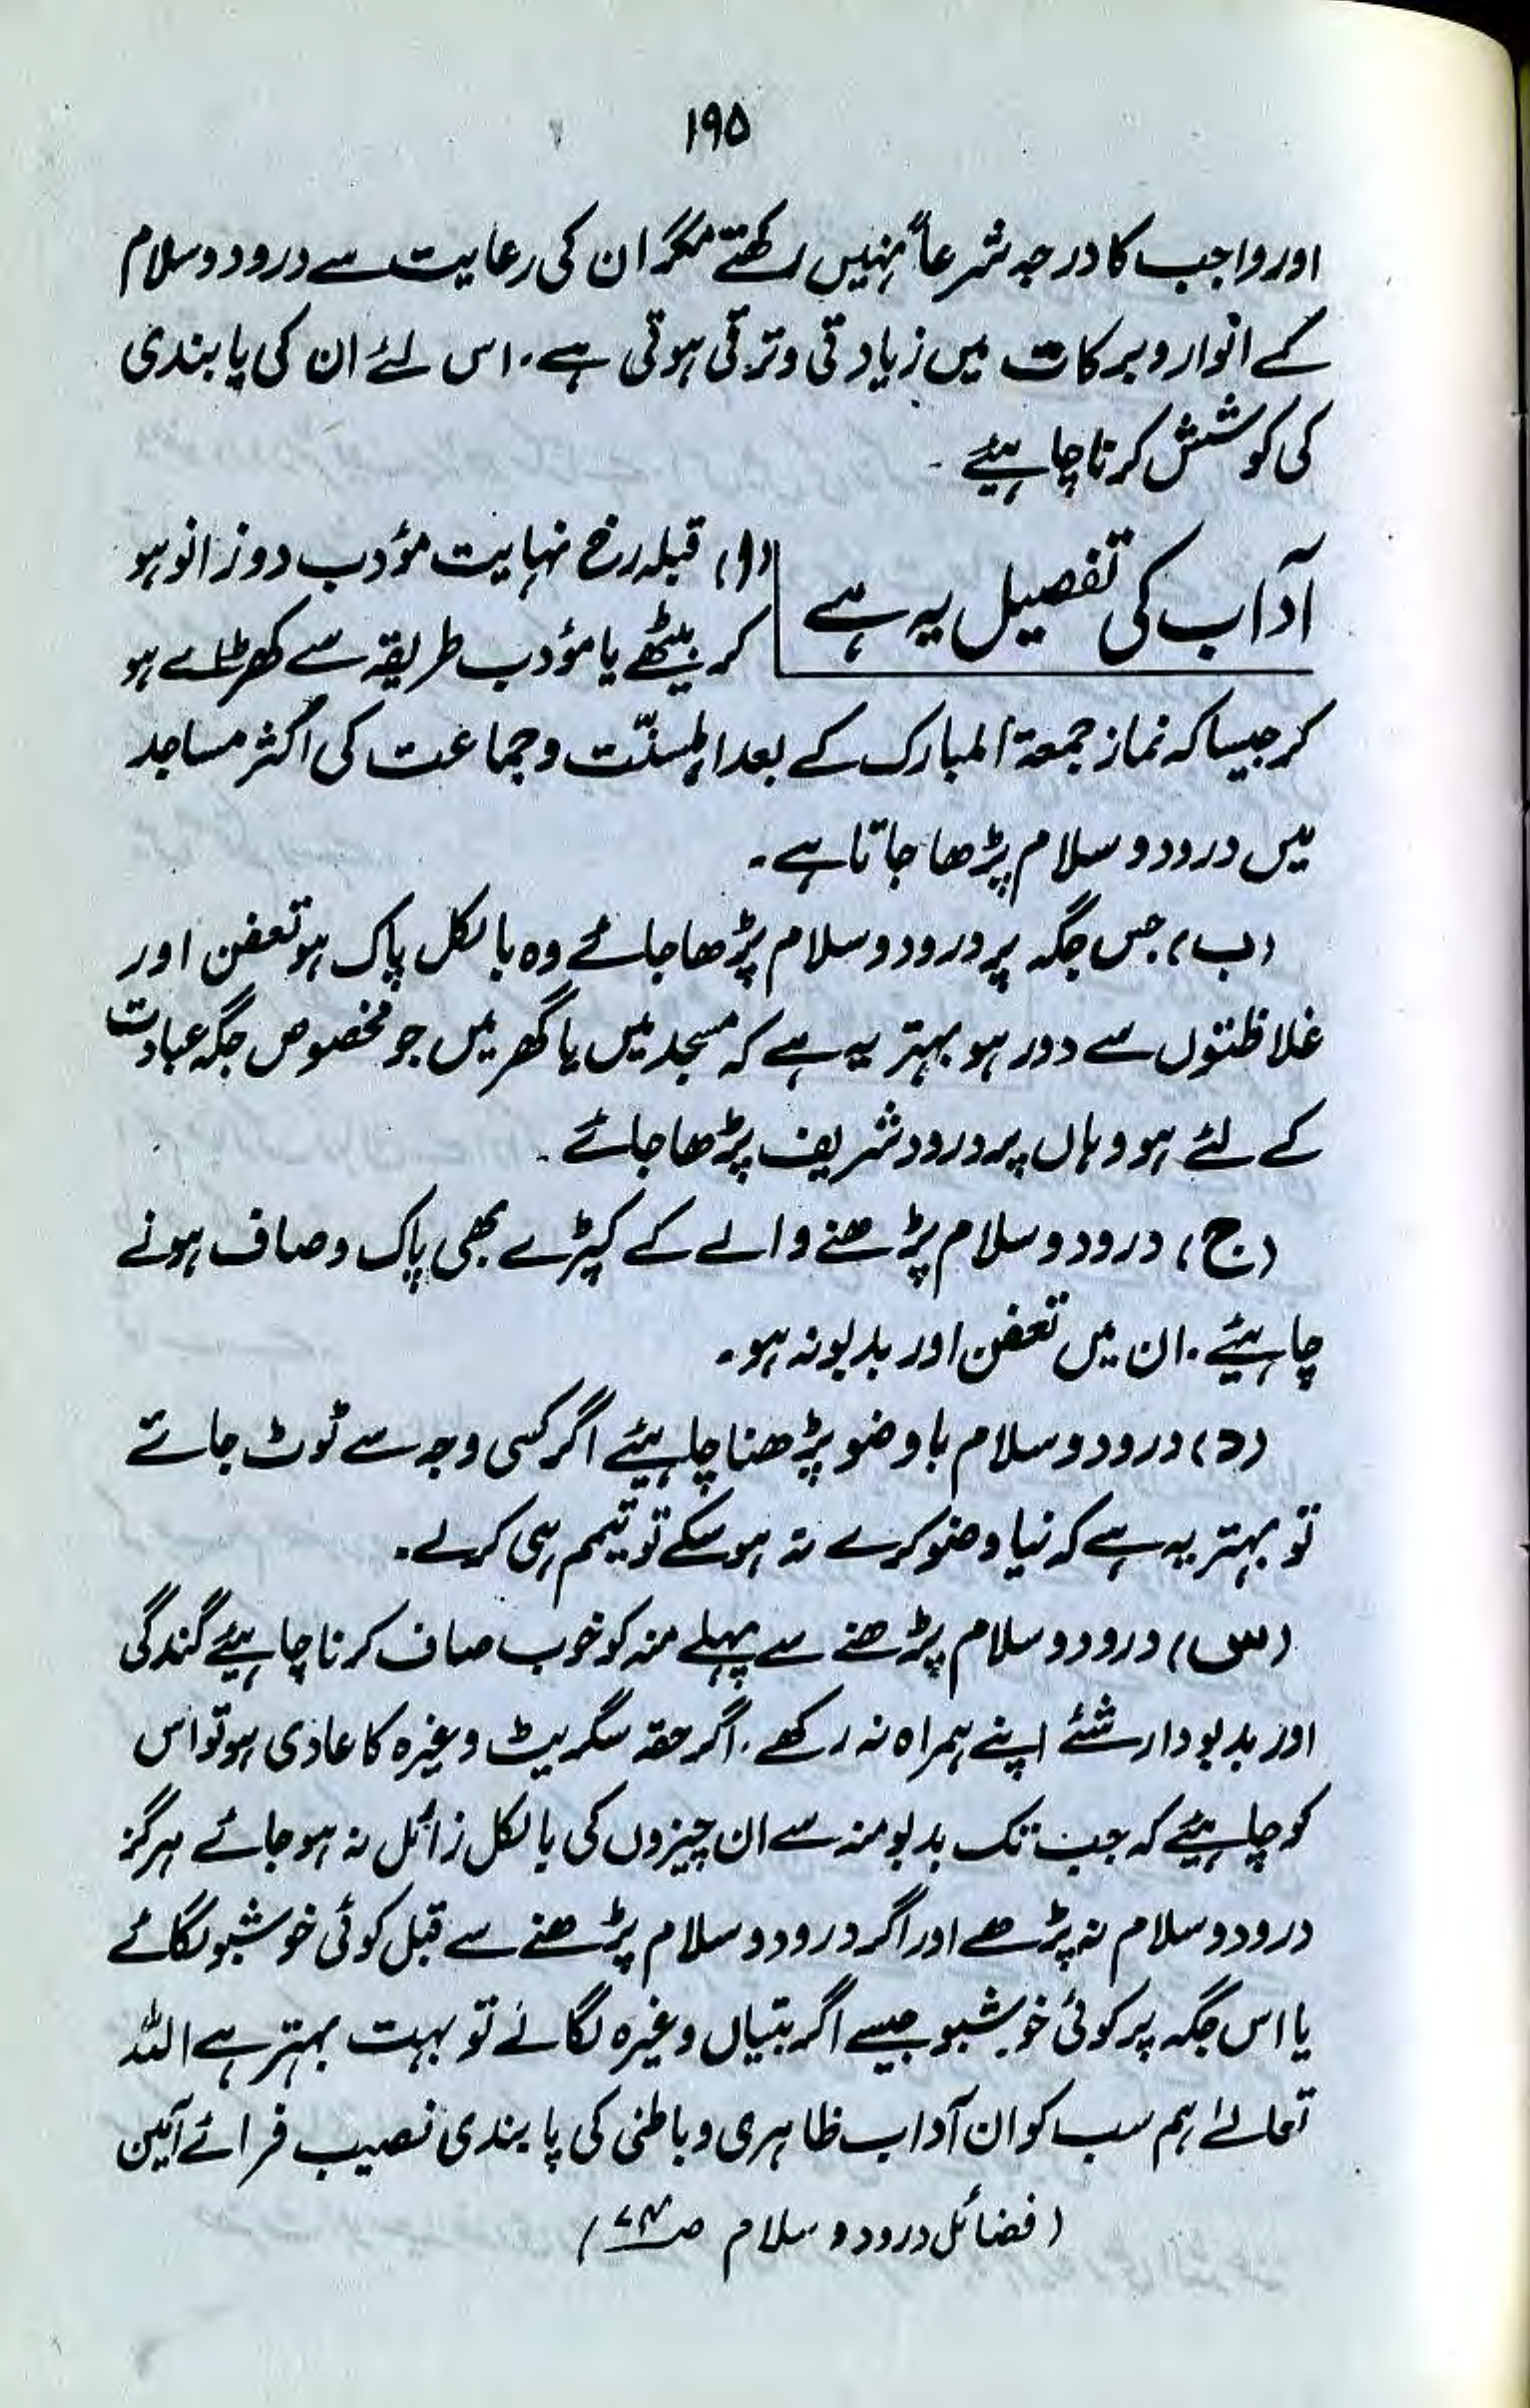 ۱۹۵
اور واجب کا درجہ شرعاً نہیں رکھتے مگر ان کی رعایت سے درود و سلام
کے انوار و برکات میں زیادتی و ترقی ہوتی ہے۔ اس لئے ان کی پابندی
کی کوشش کرنا چاہیئے۔
آداب کی تفصیل یہ ہے
(ا) قبلہ رخ نہایت مؤدب دو زانو ہو
کر بیٹھے یا مؤدب طریقہ سے کھڑے ہو
کر جیسا کہ نماز جمعۃ المبارک کے بعد اہلسنّت و جماعت کی اکثر مساجد
میں درود و سلام پڑھا جاتا ہے۔
(ب) جس جگہ پر درود و سلام پڑھا جائے وہ بالکل پاک ہو تعفن اور
غلاظتوں سے دور ہو بہتر یہ ہے کہ مسجد میں یا گھر میں جو مخصوص جگہ عبادت
کے لئے ہو وہاں پر درود شریف پڑھا جائے۔
(ج) درود و سلام پڑھنے والے کے کپڑے بھی پاک و صاف ہونے
چاہیئے۔ ان میں تعفن اور بدبو نہ ہو۔
(د) درود و سلام با وضو پڑھنا چاہیئے اگر کسی وجہ سے ٹوٹ جائے
تو بہتر یہ ہے کہ نیا وضو کرے نہ ہو سکے تو تیمم ہی کر لے۔
(س) درود و سلام پڑھنے سے پہلے منہ کو خوب صاف کرنا چاہیئے گندگی
اور بدبودار شئے اپنے ہمراہ نہ رکھے۔ اگر حقہ سگریٹ وغیرہ کا عادی ہو تو اس
کو چاہیئے کہ جب تک بدبو منہ سے ان چیزوں کی بالکل زائل نہ ہو جائے ہرگز
درود و سلام نہ پڑھے اور اگر درود و سلام پڑھنے سے قبل کوئی خوشبو لگائے
یا اس جگہ پر کوئی خوشبو جیسے اگر بتیاں وغیرہ لگائے تو بہت بہتر ہے اللہ
تعالےٰ ہم سب کو ان آداب ظاہری و باطنی کی پابندی نصیب فرمائے آمین
(فضائل درود و سلام ص۷۴)